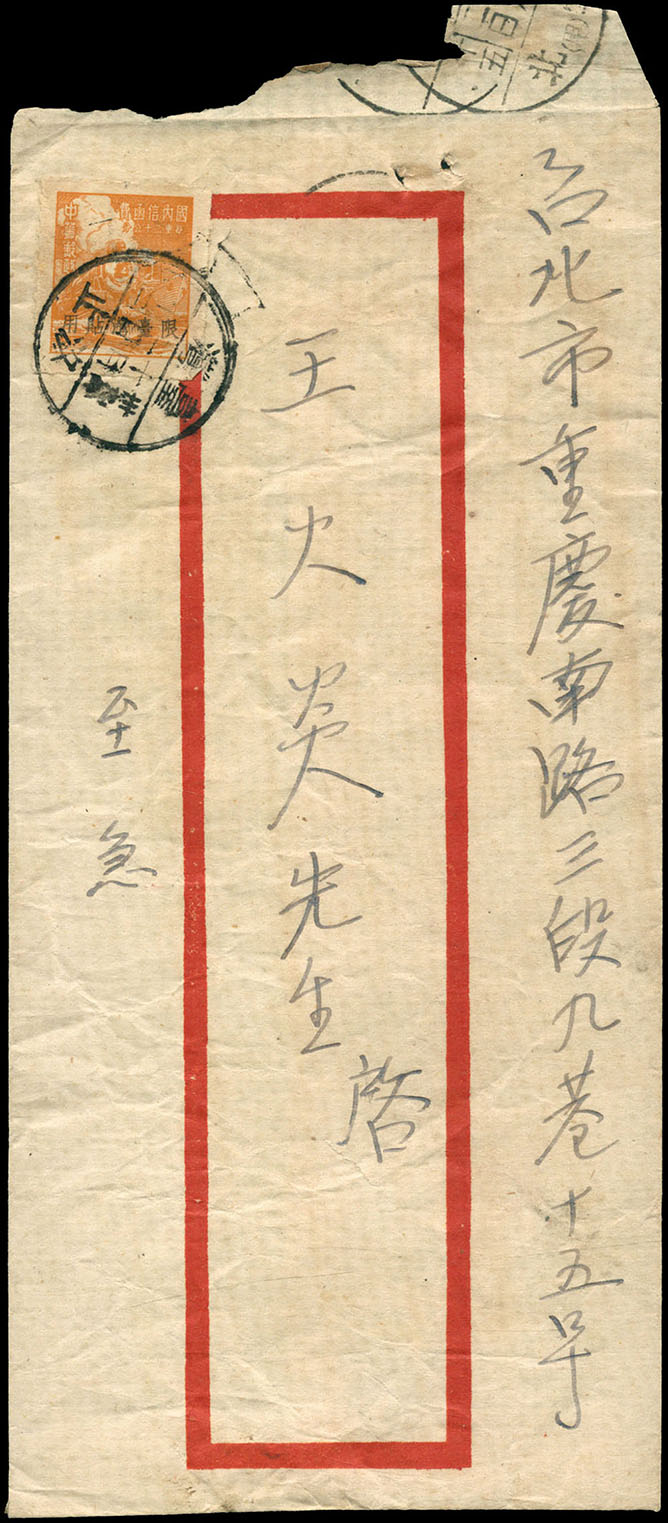 台北市重慶南路三段九巷十五号
王火炎先生 啓
至急
國內信函費
中華郵政
限臺灣貼用